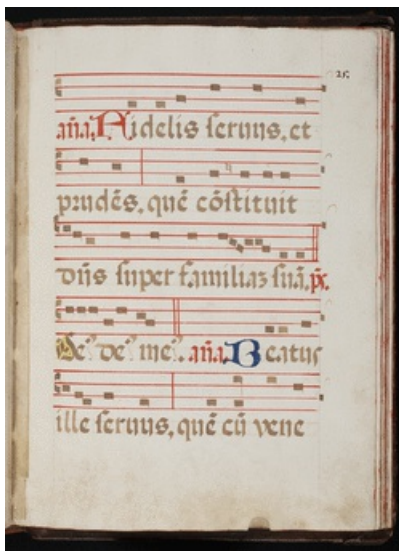 25.
añа. Fidelis seruus, et
prudẽs, quẽ cõstituit
dñs super familiaз suã. p̃s.
De de me. añа. Beatus
ille seruus, quẽ cũ vene